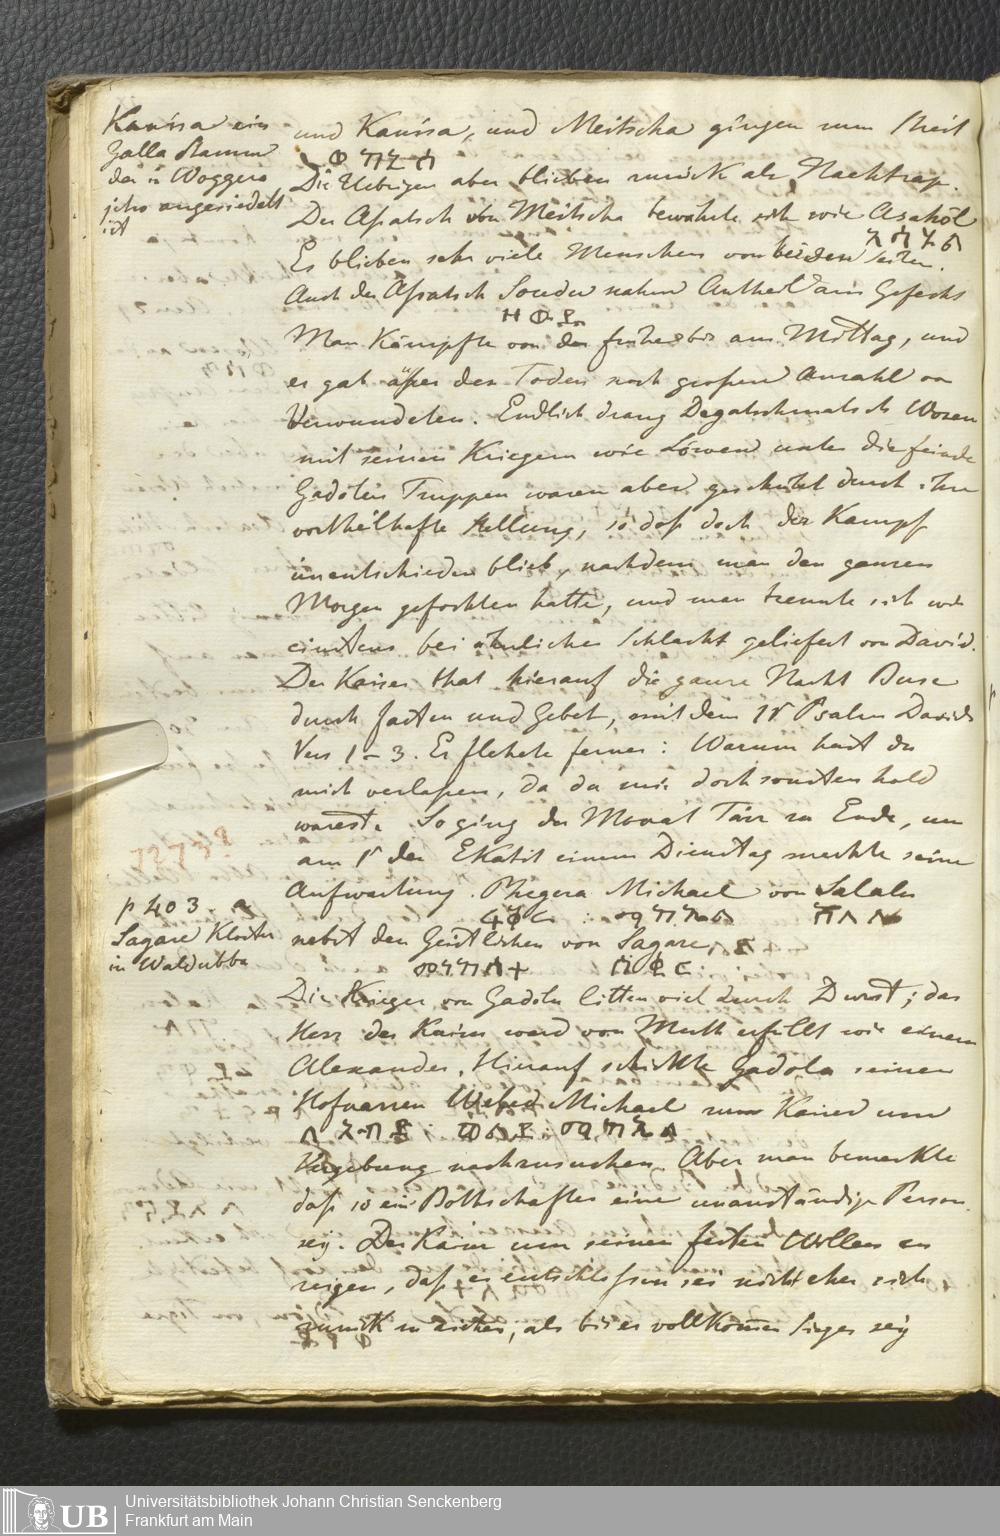 Kanisa ein
Galla Stamm
der in Woggera
jetzo angesiedelt
ist
und Kanisa, und Meitscha gingen zum Theil
Die Uebrigen aber blieben zurück als Nachtrap.
Der Asatsch von Meitscha bewährte sich wie Asahöl
Es blieben sehr viele Menschen von beiden Seiten.
Auch der Asatsch Souder nahm Antheil am Gefecht
Man kämpfte von der frühe bis am Mittag, und
es gab äußer den Toden noch großen Anzahl von
Verwundeten. Endlich drang Degatschmatsch Wosen
mit seinen Kriegern wie Löwen unter die feinde
Gadolas Truppen waren aber geschützt durch ihre
vortheilhafte Stellung, so daß doch der Kampf
unentschieden blieb, nachdem man den ganzen
Morgen gefochten hatte, und man trennte sich wie
einstens bei ähnlicher Schlacht geliefert von David.
Der Kaiser that hierauf die ganze Nacht Buse
durch fasten und Gebet, mit dem 15 Psalm Davids
Vers 1-3. Er flehete ferner: Warum hast du
mich verlaßen, da du mir doch sonsten hold
warest. So ging der Monat Tärr zu Ende, un
am 15 der Ekatit einem Dienstag machte seine
Aufwartung. Phegera Michael von Salalu
p 403.
Sagare Kloster
in Waldubba
nebst den Geistlichen von Sagare
Die Krieger von Gadola litten viel durch Durst; das
Herz des Kaisers ward von Muth erfüllt wie einem
Alexander. Hierauf schickte Gadola seinen
Hofnarren Webed Michael zum Kaiser um
Vergebung nachzusuchen. Aber man bemerkte
daß so ein Bothschafter eine unanständige Person
sey. Der Kaiser um seinen festen Willen zu
zeigen, daß er entschloßen sei nicht eher sich
zurück zu ziehen, als bis er vollkommen Sieger sey
UB
Universitätsbibliothek Johann Christian Senckenberg
Frankfurt am Main